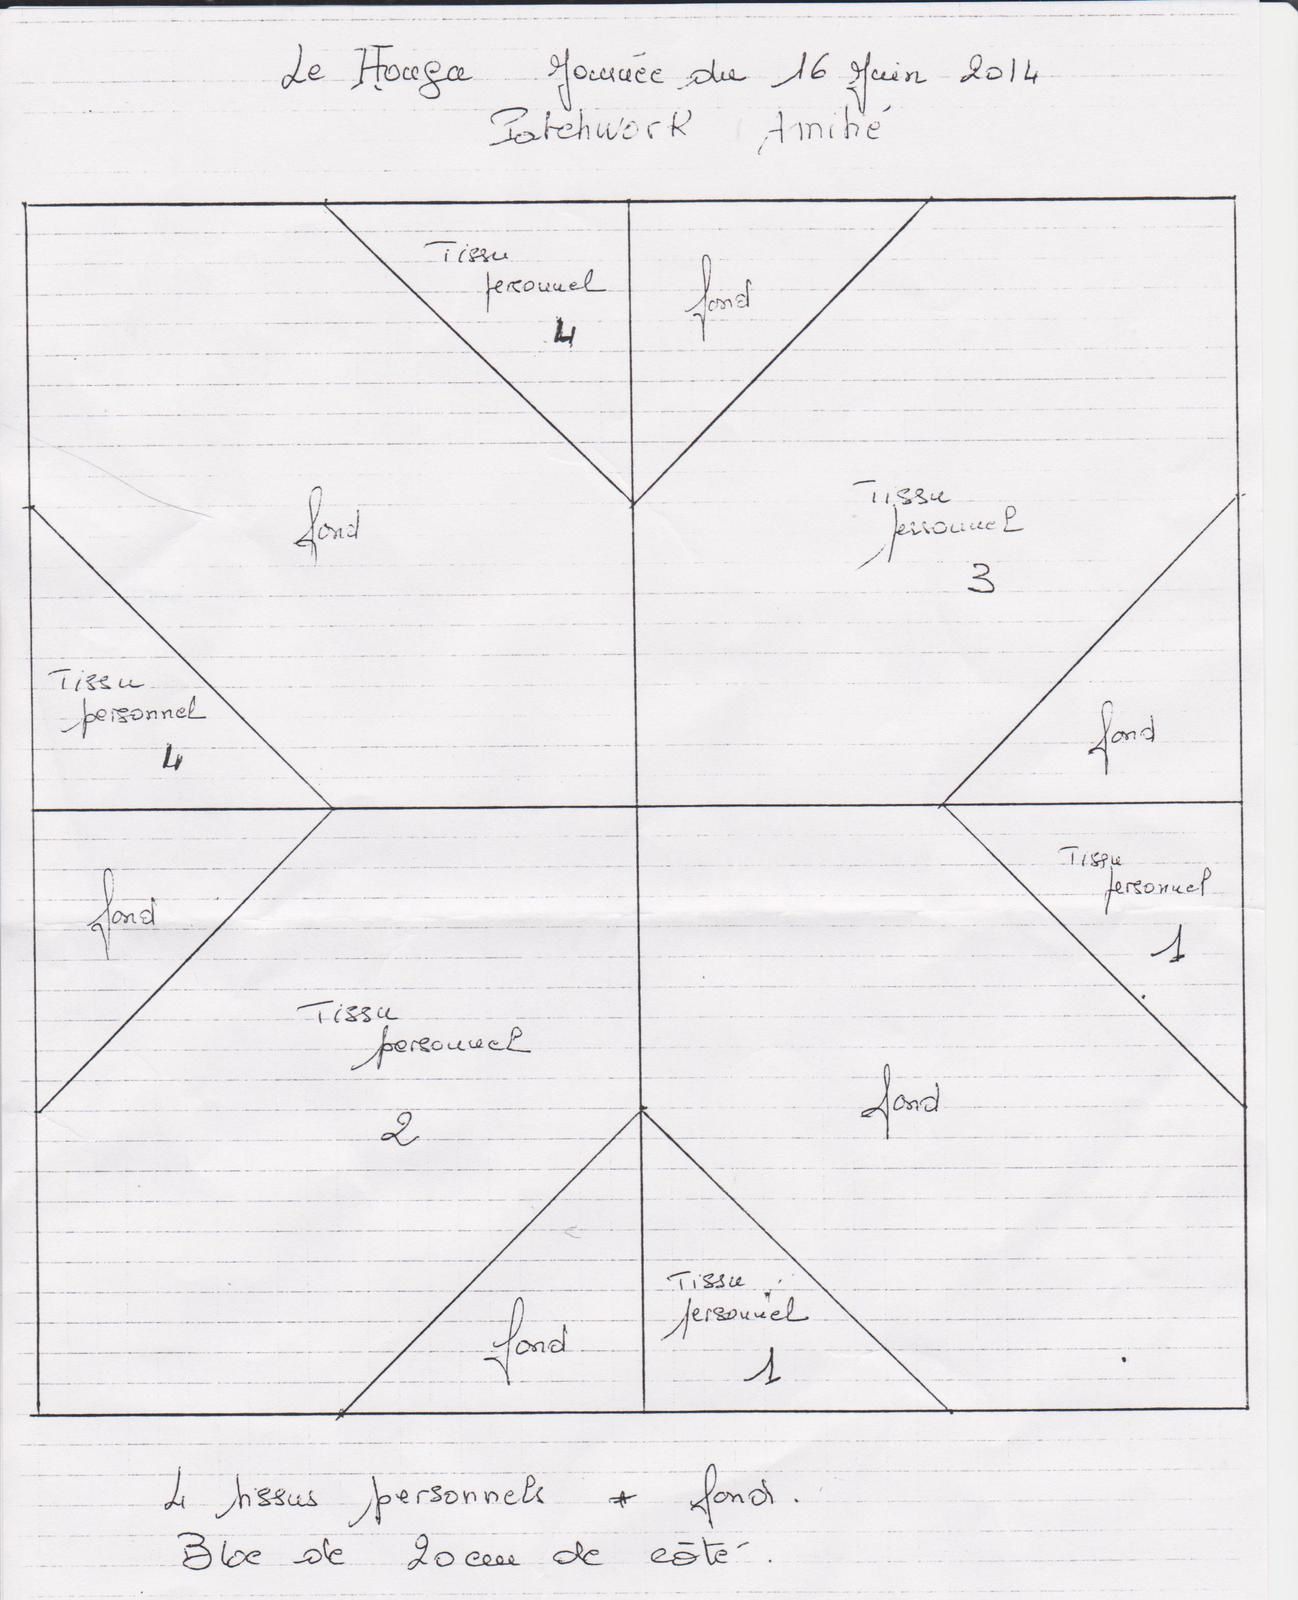 Le Houga Journée du 16 Juin 2014
Patchwork Amitié
Tissu
personnel
4
fond
fond
Tissu
personnel
3
Tissu
personnel
4
fond
fond
Tissu
personnel
1
Tissu
personnel
2
fond
fond
Tissu
personnel
1
4 tissus personnels + fond.
Bloc de 20cm de côté.